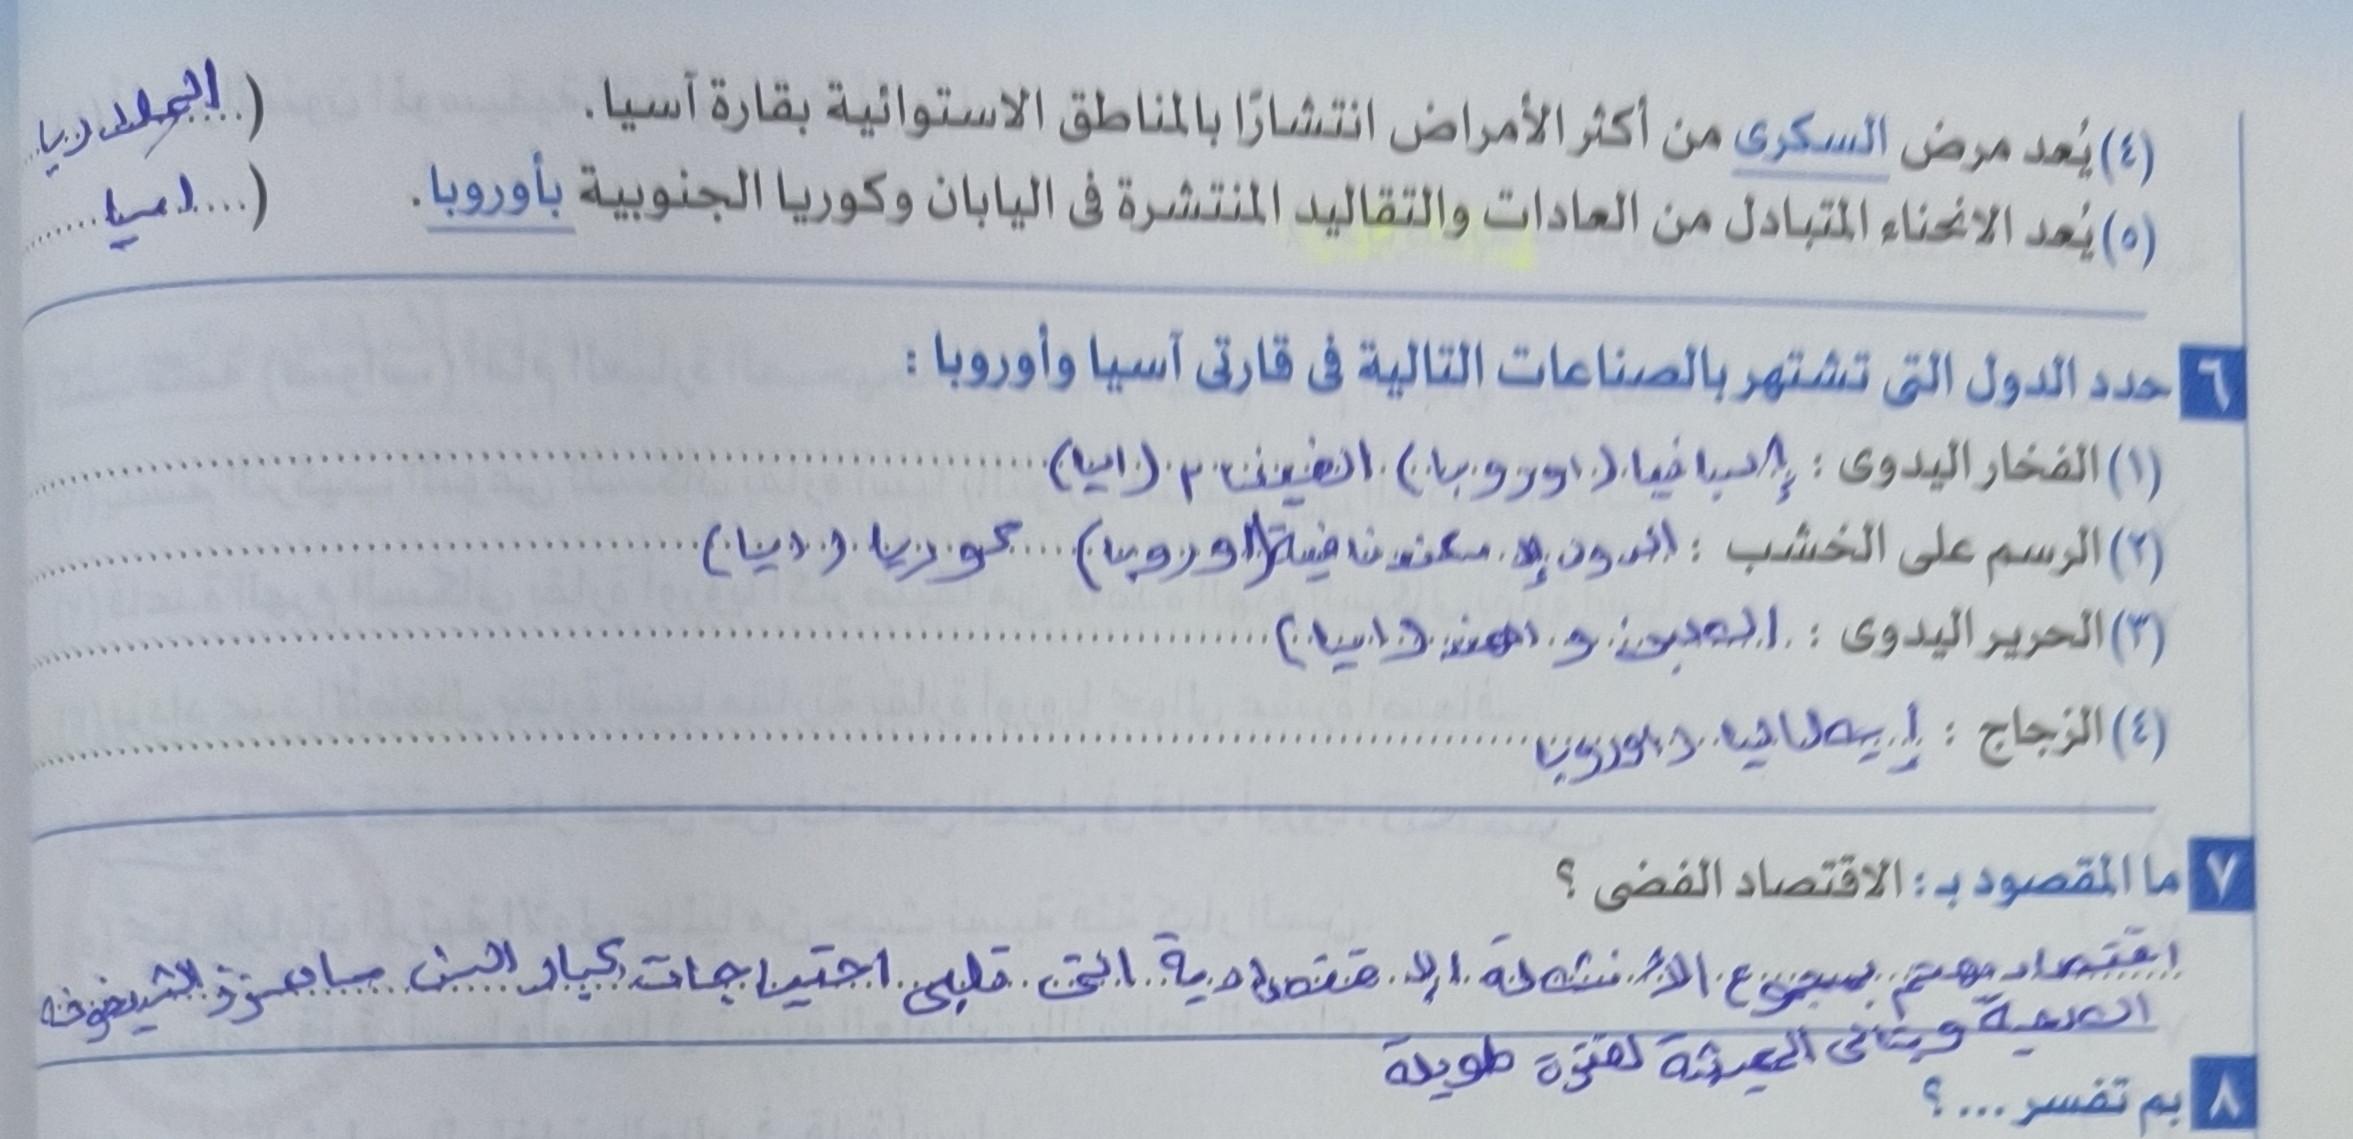 (٤) يُعد مرض السكرى من أكثر الأمراض انتشارًا بالمناطق الاستوائية بقارة آسيا. (الملاريا
(٥) يُعد الانحناء المتبادل من العادات والتقاليد المنتشرة فى اليابان وكوريا الجنوبية بأوروبا. (اسيا
٦ حدد الدول التى تشتهر بالصناعات التالية فى قارتى آسيا وأوروبا :
(١) الفخار اليدوى : إسبانيا (اوروبا) (اسيا)
(٢) الرسم على الخشب : الدول الاسكندنافية (اوروبا) كوريا (اسيا)
(٣) الحرير اليدوى : الصين و الهند (اسيا)
(٤) الزجاج : إيطاليا (اوروبا
٧ ما المقصود بـ : الاقتصاد الفضى ؟
اقتصاد يهتم بجميع الأنشطة الاقتصادية التى تلبى احتياجات كبار السن الشيخوخة
الصحية المعيشة لفترة طويلة
٨ بم تفسر ... ؟